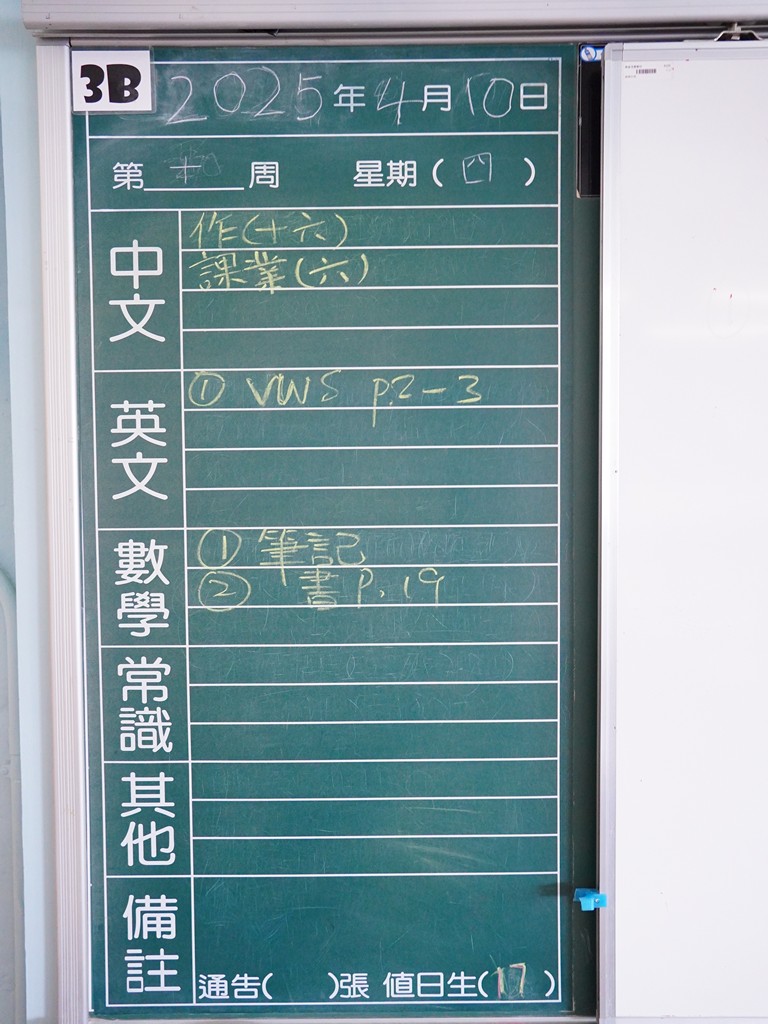 3B
2025年4月10日
第 周 星期(四)
中文
作(十六)
課業(六)
英文
① VWS p.2-3
數學
① 筆記
② 書P.19
常識
其他
備註
通告( )張 值日生(17)